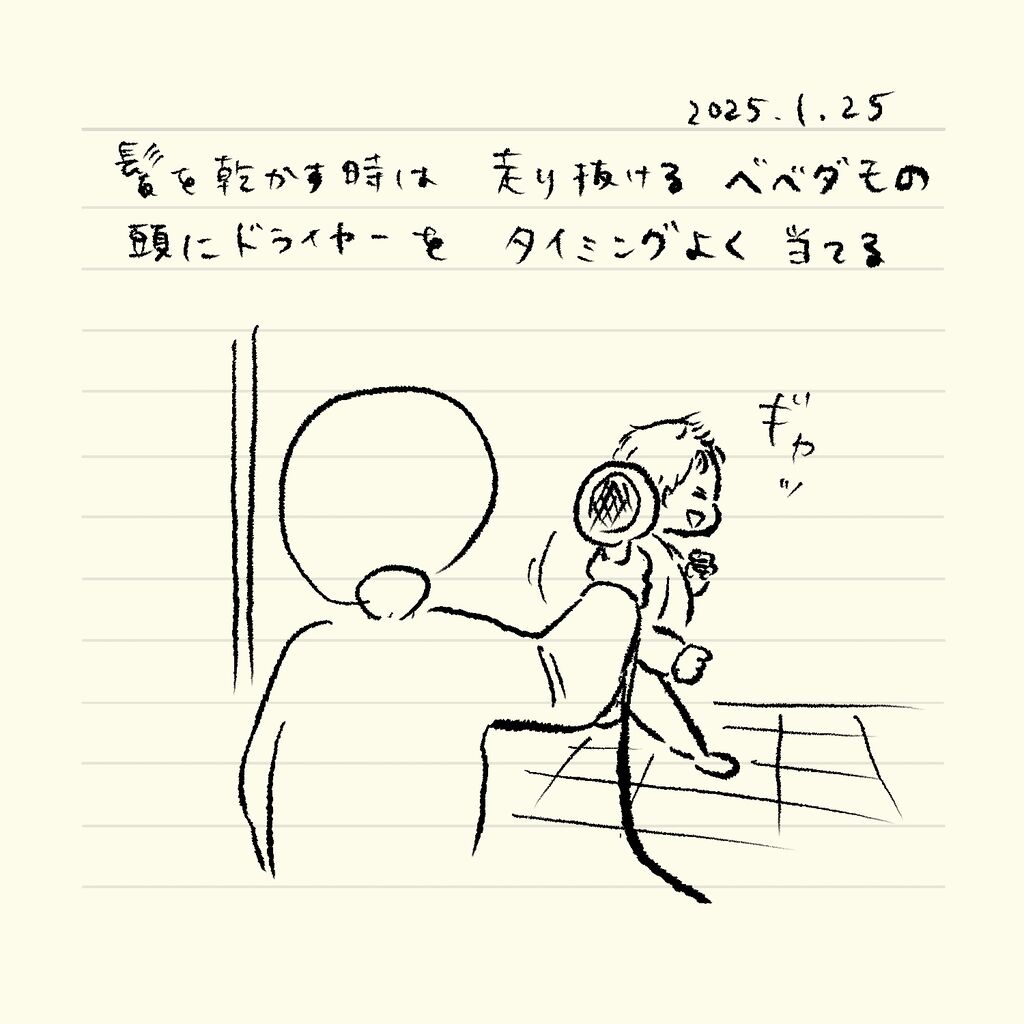 2025.1.25
髪を乾かす時は 走り抜ける ベベダモの
頭にドライヤーを タイミングよく 当てる
ギャッ